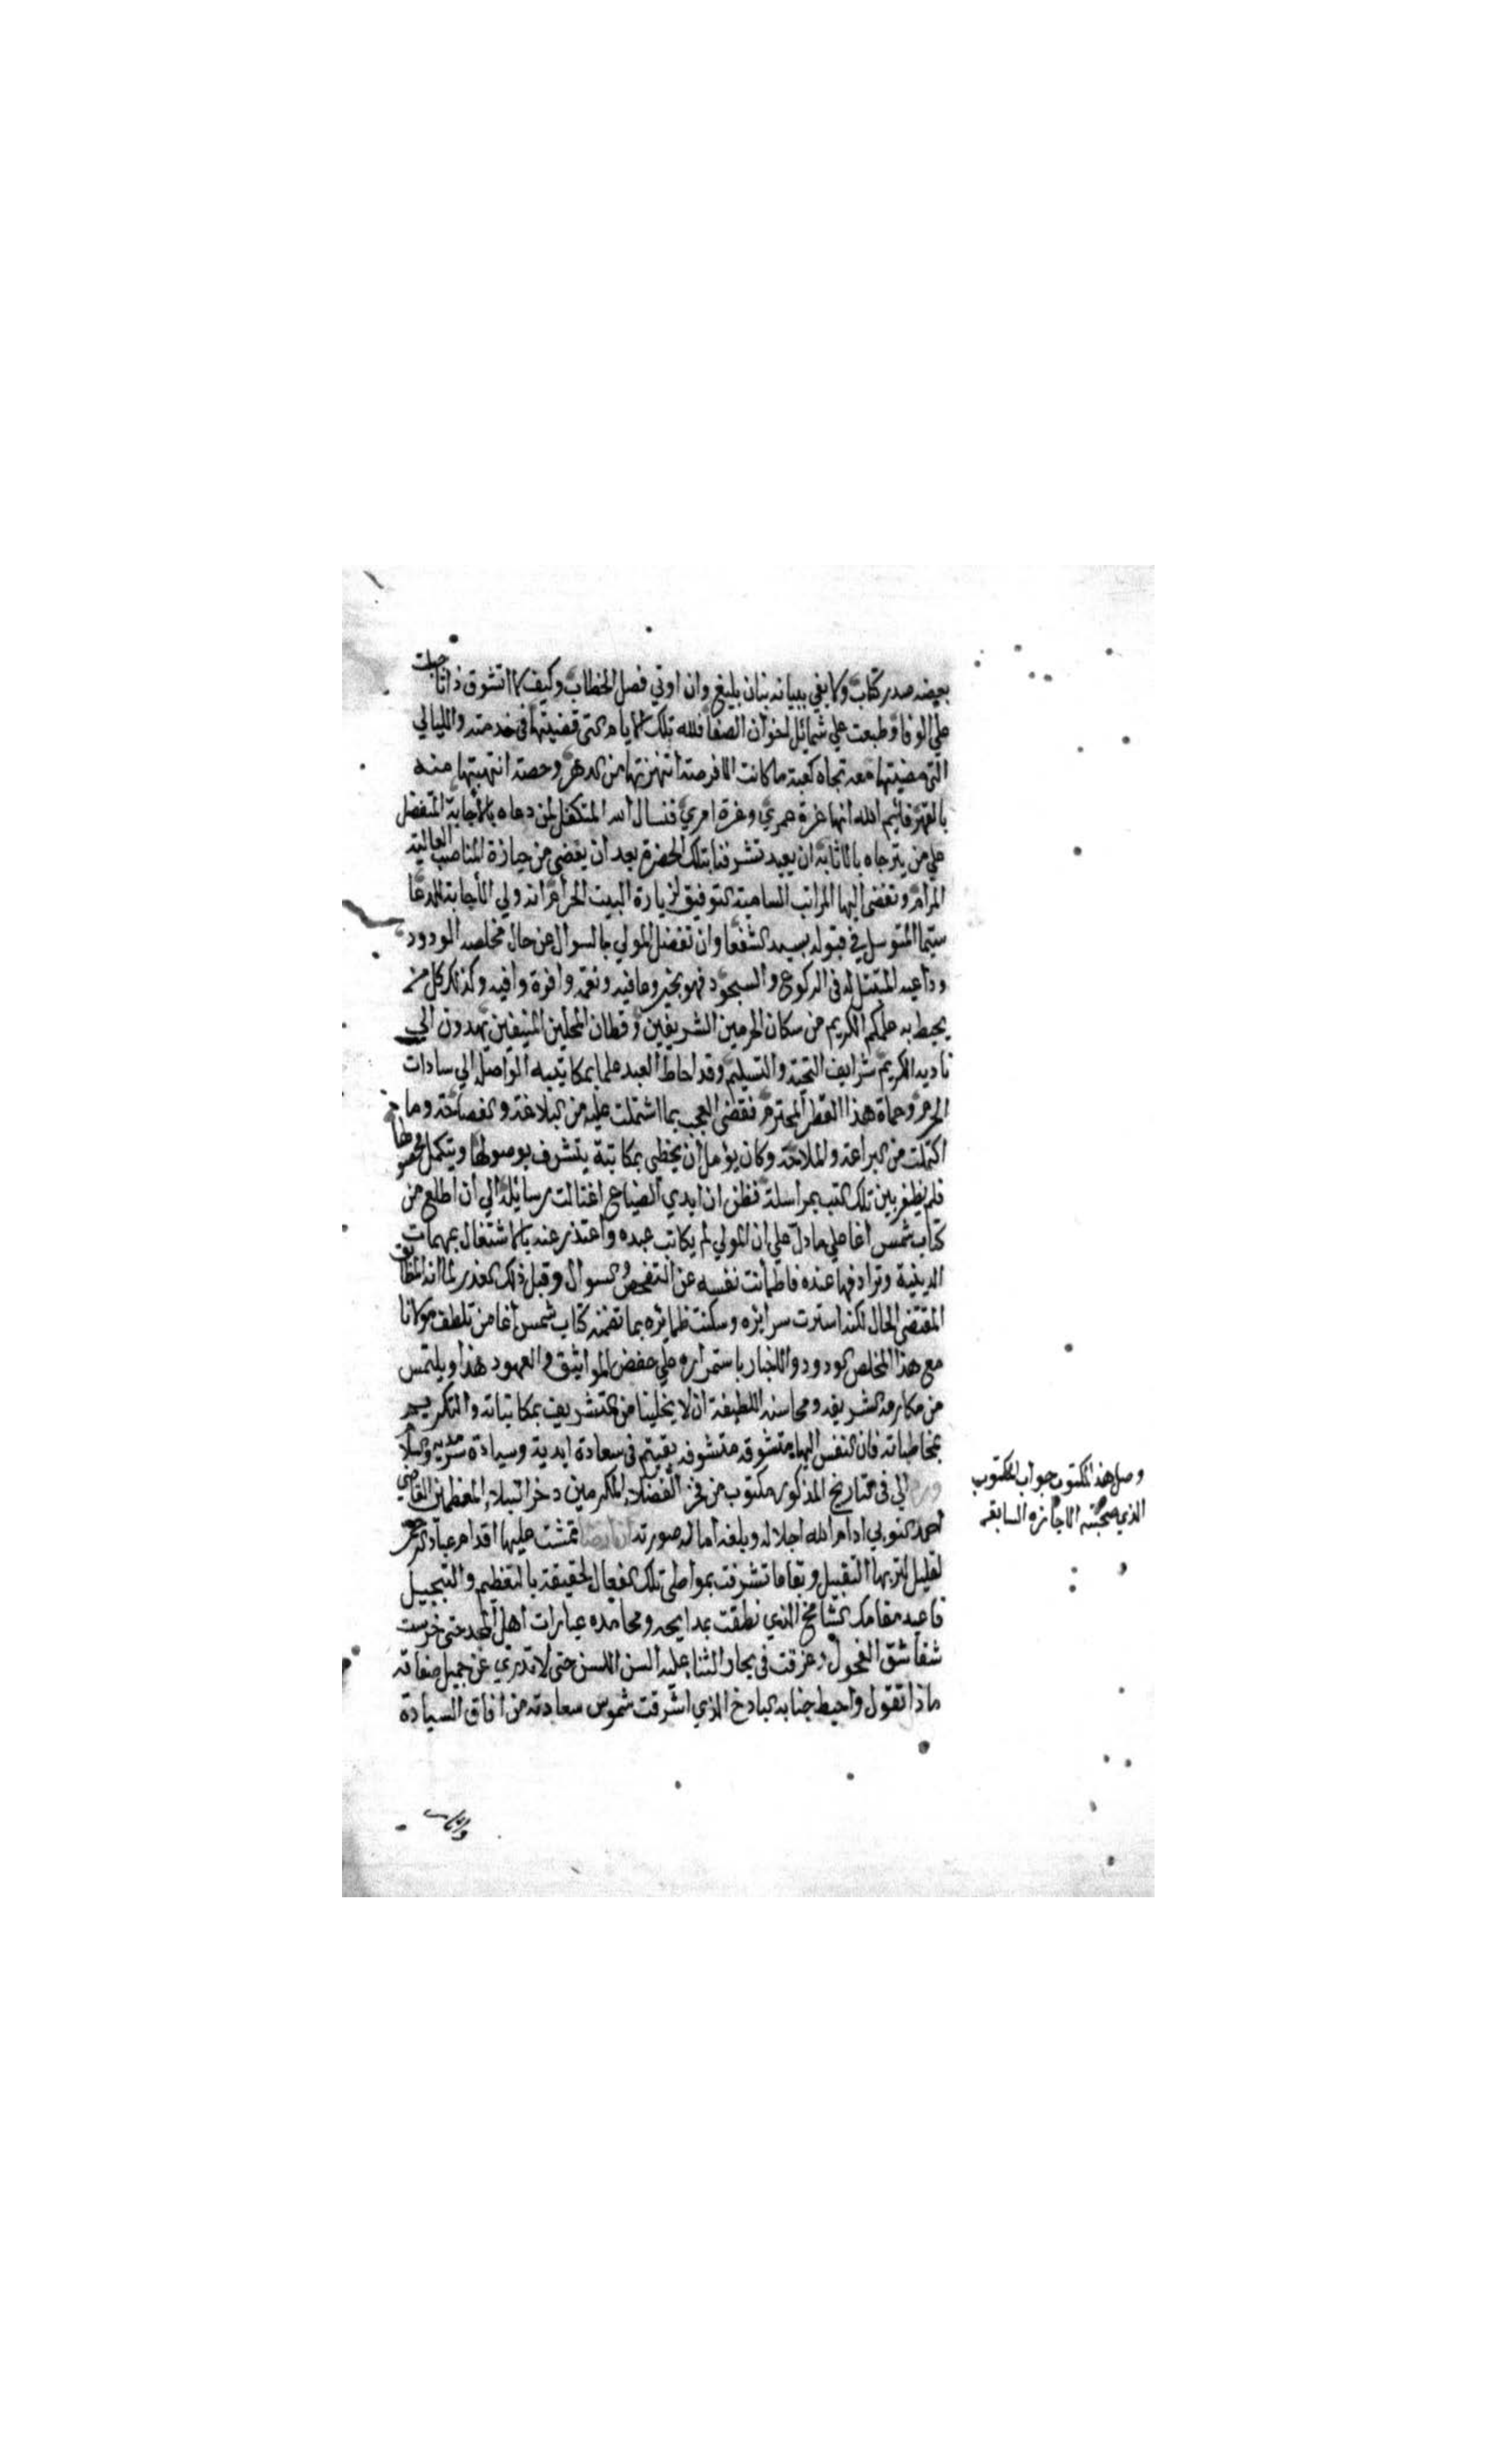 بعضه صدر كتاب ولا يفي ببيانه بنان بليغ وان اوتي فصل الخطاب وكيف لا اتشوق ذاتا جبلت
علي الوفا وطبعت علي شمائل اخوان الصفا فلله تلك الايام التي قضيتها في خدمته والليالي
التي مضيتها معه تجاه كعبة ما كانت الا فرصة انتهزتها من الدهر وحصة انتهبتها منه
بالقهر فايم الله انها غرة عمري وغرة امري فنسال الله المتكفل لمن دعاه بالاجابة المتفضل
علي من يترجاه بالاثابة ان يعيد تشرفنا بتلك الحضرة بعد ان يقضي من حيازة المناصب العالية
المرام وتفضي اليها المراتب السامية التوفيق لزيارة البيت الحرام انه ولي الاجابة للدعا
سيما المتوسل في قبوله بسيد الشفعا وان تفضل المولي بالسوال عن حال مخلصه الودود
وداعيه المبتهل له في الركوع والسجود فهو بخير وعافيه ونعمة وافرة وافيه وكذلك كل من
يحيط به علمكم الكريم من سكان الحرمين الشريفين وقطان المحلين المنيفين يهدون الي
ناديه الكريم شرايف التحية والتسليم وقد احاط العبد علما بمكاتيبه الواصلة الي سادات
الحرم وحماة هذا القطر المحترم فقضي العجب بما اشتملت عليه من البلاغة والفصاحة وما
اكتملت من البراعة والملاحة وكان يؤمل ان يحظي بمكاتبة يتشرف بوصولها ويتكمل بحصولها
فلم يظفر بين تلك الكتب بمراسلة فظن ان ايدي الضياع اغتالت رسائله الي ان اطلع من
كتاب شمس اغا علي ما دل علي ان المولي لم يكاتب عبده واعتذر عنه بالاشتغال بمهمات
الدينية وترادفها عنده فاطمأنت نفسه عن التفحص والسوال وقبل ذلك العذر لما انه المطابق
المقتضي الحال لكنه استرت سرايره وسكنت ضمائره بما تضمنه كتاب شمس اغا من تلطف مولانا
مع هذا المخلص الودود والاخبار باستمراره علي حفض المواثيق والعهود هذا ويلتمس
من مكارمه الشريفه ومحاسنه اللطيفة ان لا يخلينا من التشريف بمكاتباته والتكريم
بمخاطباته فان النفس اليها متشوقه متشوفه بقيتم في سعادة ابدية وسيادة سرمديه والسلام
ورد الي في التاريخ المذكور مكتوب من فخر الفضلاء المكرمين ذخر النبلاء المعظمين القاضي
احمد النوبي ادام الله اجلاله وبلغه اماله صورته ان ارضا تمشت عليها اقدام عبادكم
لقليل لتربها التقبيل وبقاعا تشرفت بمواطي تلك النعال لحقيقة بالتعظيم والتبجيل
فاعيد مقامك الشامخ الذي نطقت بمدايحه ومحامده عبارات اهل المجد حتى خرست
شقاشق الفحول وغرقت في بحار الثنا عليه السن اللسن حتى لا تدري عن جميل صفاته
ماذا تقول واحيط جنابه الباذخ الذي اشرقت شموس سعادته من افاق السيادة
وصل هذا المكتوب جواب المكتوب
الذي صحبته الاجازه السابقه